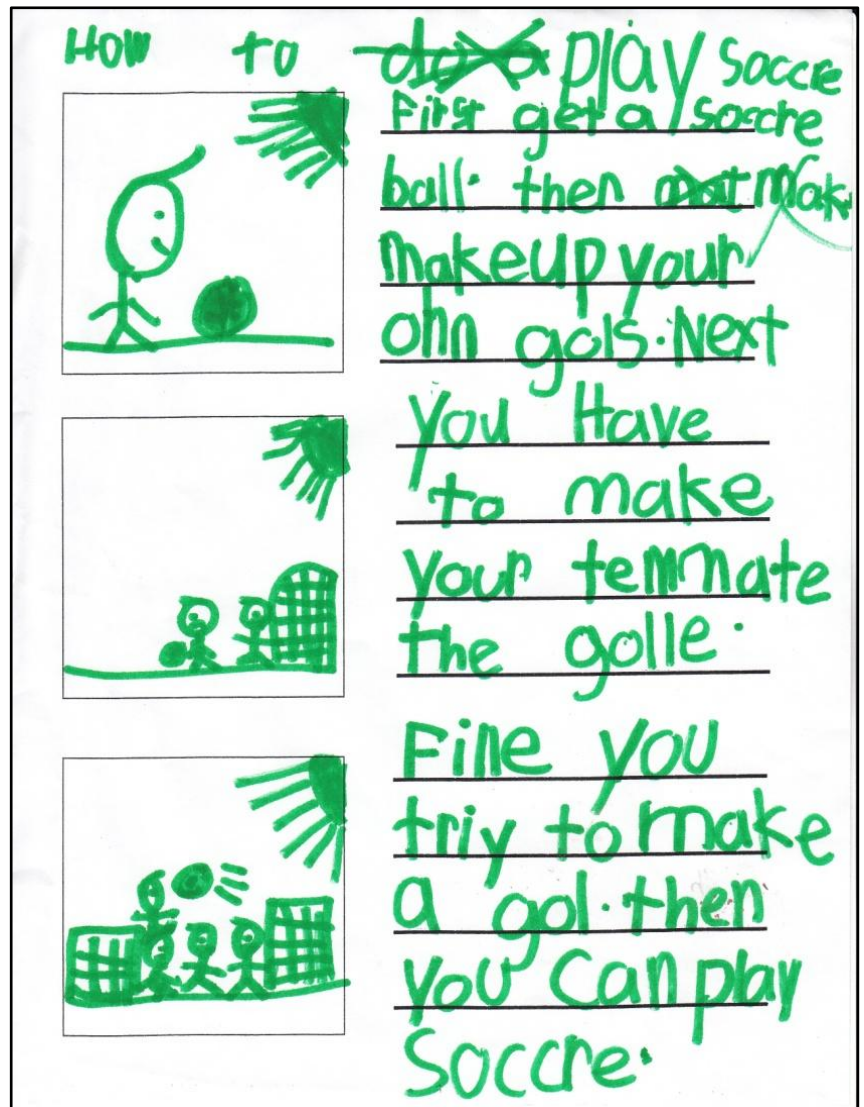 How to do a play soccre
First get a soccre
ball. then mat Mak
makeup your
ohn gols. Next
you Have
to make
your temmate
the golle.
Fine you
triy to make
a gol. then
you can play
Soccre.